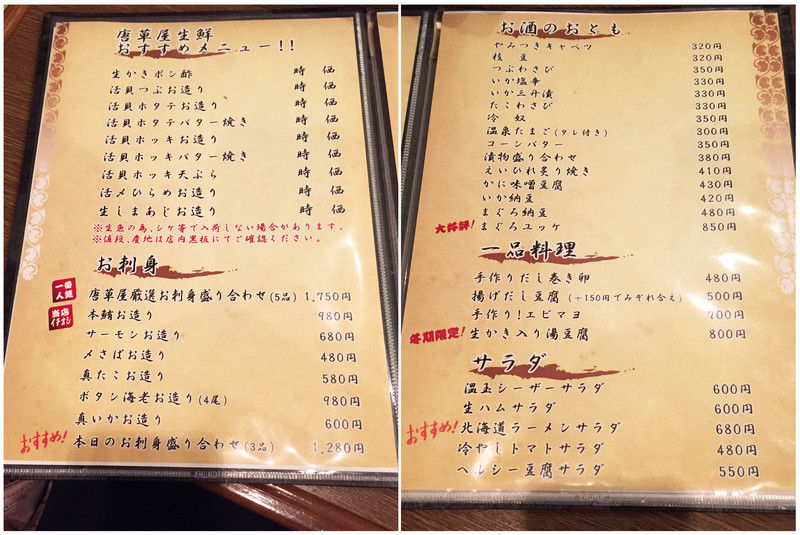 唐草屋生鮮
おすすめメニュー!!
生かきポン酢 時価
活貝つぶお造り 時価
活貝ホタテお造り 時価
活貝ホタテバター焼き 時価
活貝ホッキお造り 時価
活貝ホッキバター焼き 時価
活貝ホッキ天ぷら 時価
活〆ひらめお造り 時価
生しまあじお造り 時価
※生魚の為、シケ等で入荷しない場合があります。
※値段、産地は店内黒板にてご確認ください。
お刺身
一番人気 唐草屋厳選お刺身盛り合わせ(5品) 1,750円
当店イチオシ 本鮪お造り 980円
サーモンお造り 680円
〆さばお造り 480円
真たこお造り 580円
ボタン海老お造り(4尾) 980円
真いかお造り 600円
おすすめ! 本日のお刺身盛り合わせ(3品) 1,280円
お酒のおとも
やみつきキャベツ 320円
枝豆 320円
つぶわさび 350円
いか塩辛 330円
いか三升漬 330円
たこわさび 330円
冷奴 350円
温泉たまご(タレ付き) 300円
コーンバター 350円
漬物盛り合わせ 380円
えいひれ炙り焼き 410円
かに味噌豆腐 430円
いか納豆 420円
まぐろ納豆 480円
大好評! まぐろユッケ 850円
一品料理
手作りだし巻き卵 480円
揚げだし豆腐(+150円でみぞれ合え) 500円
手作り!エビマヨ 700円
冬期限定! 生かき入り湯豆腐 800円
サラダ
温玉シーザーサラダ 600円
生ハムサラダ 600円
おすすめ! 北海道ラーメンサラダ 680円
冷やしトマトサラダ 480円
ヘルシー豆腐サラダ 550円